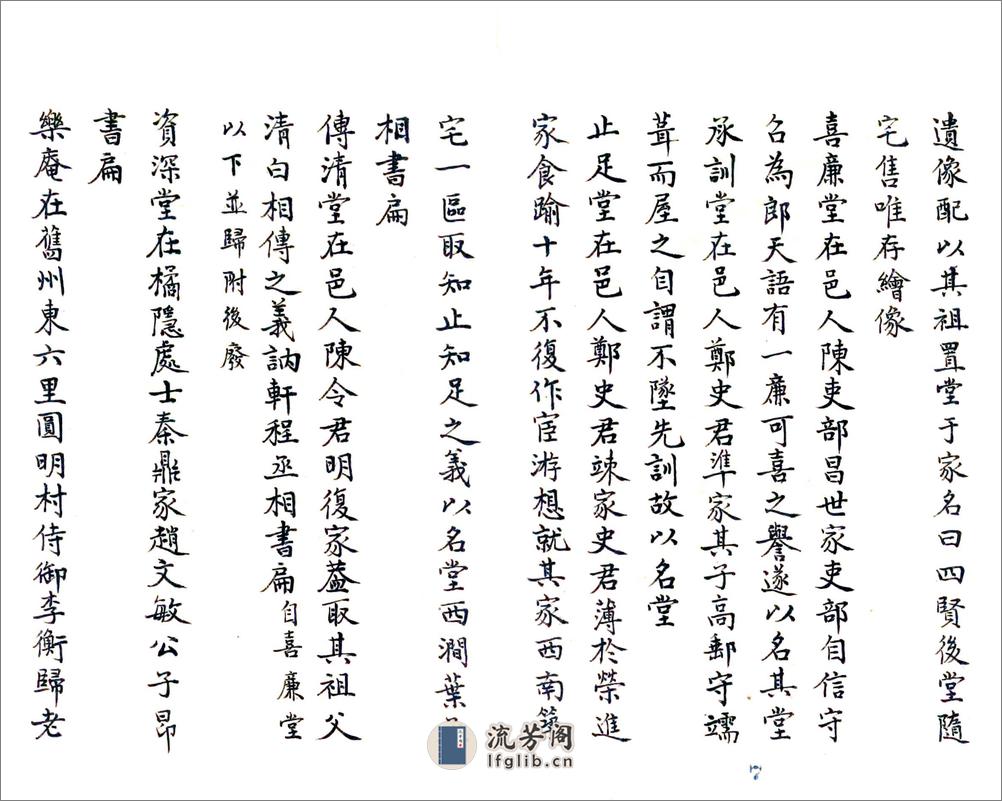 遺像配以其祖置堂于家名曰四賢後堂隨
宅售唯存繪像
喜廉堂在邑人陳吏部昌世家吏部自信守
召為郎天語有一廉可喜之譽遂以名其堂
承訓堂在邑人鄭史君準家其子高郵守霱
葺而屋之自謂不墜先訓故以名堂
止足堂在邑人鄭史君竦家史君薄於榮進
家食踰十年不復作宦游想就其家西南築
宅一區取知止知足之義以名堂西澗葉
相書扁
傳清堂在邑人陳令君明復家葢取其祖父
清白相傳之義訥軒程丞相書扁自喜廉堂
以下並歸附後廢
資深堂在橘隱處士秦鼎家趙文敏公子昂
書扁
樂庵在舊州東六里圓明村侍御李衡歸老
流芳阁
lfglib.cn
7